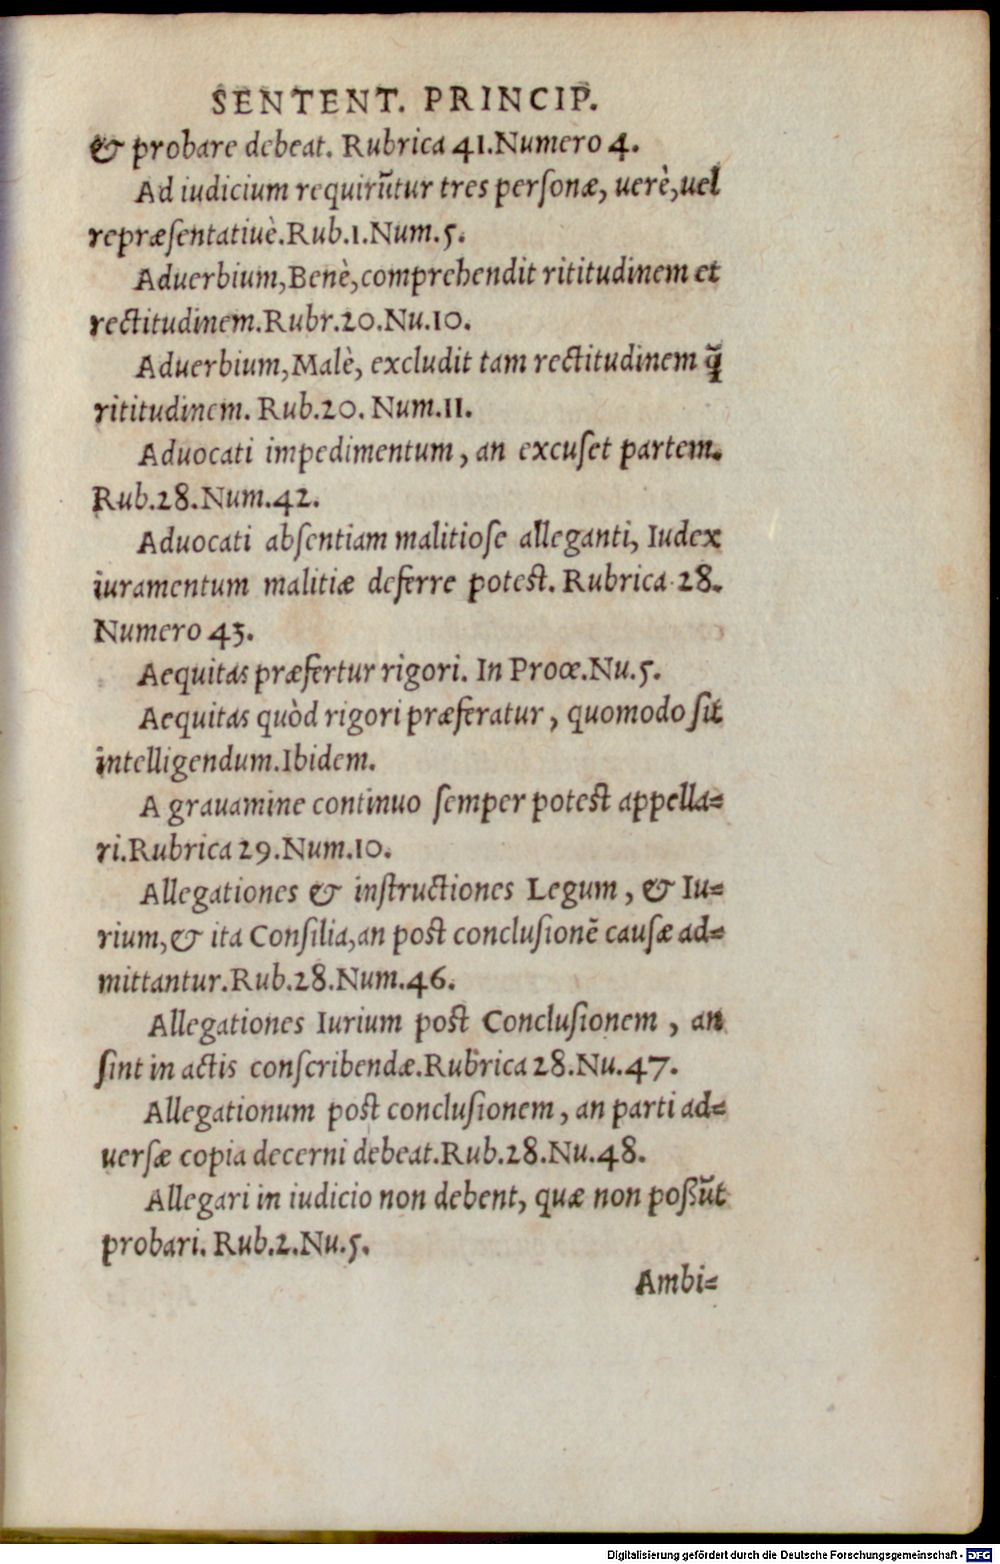 SENTENT. PRINCIP.
& probare debeat. Rubrica 41.Numero 4.
Ad iudicium requirũtur tres personæ, uerè,uel
repræsentatiuè.Rub.1.Num.5.
Aduerbium,Benè,comprehendit rititudinem et
rectitudinem.Rubr.20.Nu.10.
Aduerbium,Malè, excludit tam rectitudinem q̃
rititudinem. Rub.20. Num.11.
Aduocati impedimentum, an excuset partem.
Rub.28.Num.42.
Aduocati absentiam malitiose alleganti, Iudex
iuramentum malitiæ deferre potest. Rubrica 28.
Numero 43.
Aequitas præfertur rigori. In Proœ.Nu.5.
Aequitas quòd rigori præferatur, quomodo sit
intelligendum.Ibidem.
A grauamine continuo semper potest appella=
ri.Rubrica 29.Num.10.
Allegationes & instructiones Legum, & Iu=
rium,& ita Consilia,an post conclusionẽ causæ ad=
mittantur.Rub.28.Num.46.
Allegationes Iurium post Conclusionem, an
sint in actis conscribendæ.Rubrica 28.Nu.47.
Allegationum post conclusionem, an parti ad=
uersæ copia decerni debeat.Rub.28.Nu.48.
Allegari in iudicio non debent, quæ non poßũt
probari. Rub.2.Nu.5.
Ambi=
Digitalisierung gefördert durch die Deutsche Forschungsgemeinschaft - DFG